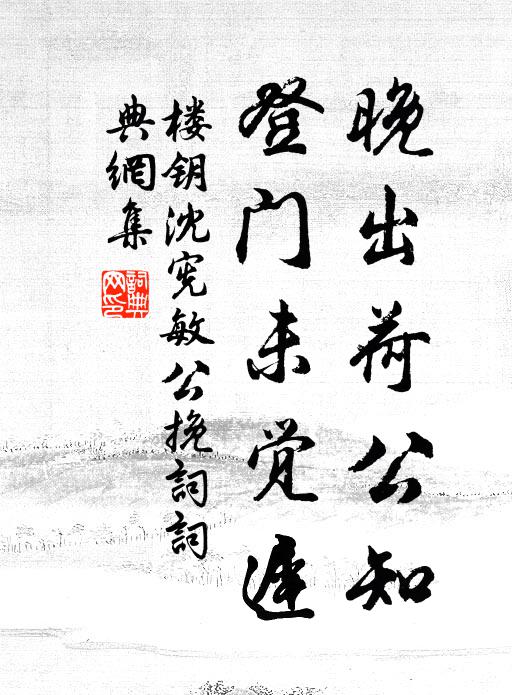 晚出荷公知
登门未觉遲
楼钥沈宪敏公挽詞詞
典網集
詞典
网印